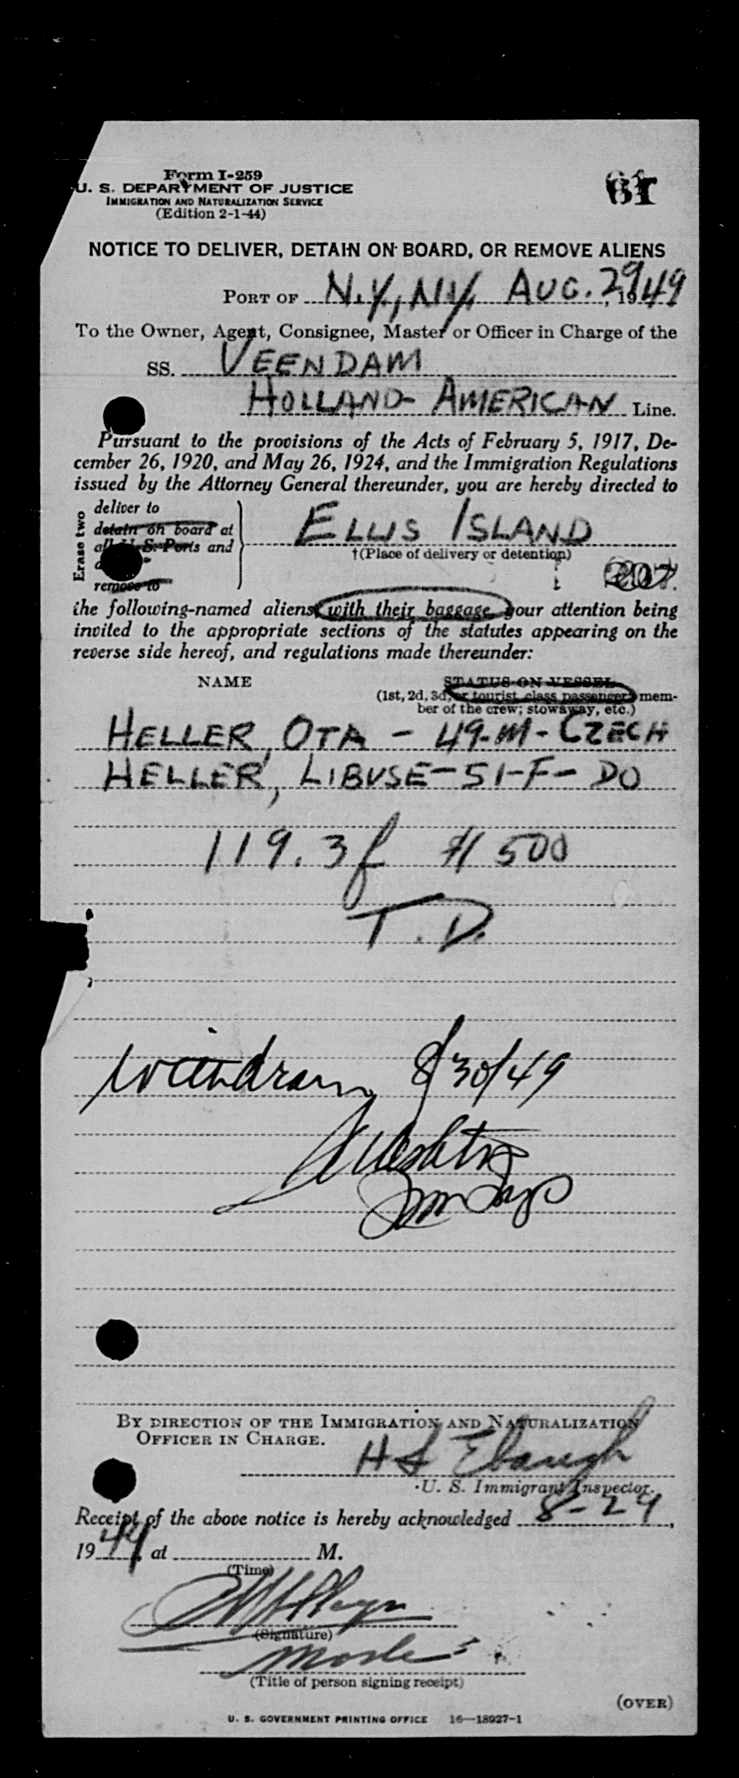 Form I-259
U. S. DEPARTMENT OF JUSTICE
IMMIGRATION AND NATURALIZATION SERVICE
(Edition 2-1-44)
61
NOTICE TO DELIVER, DETAIN ON BOARD, OR REMOVE ALIENS
PORT OF N.Y., N.Y. AUG. 29, 1949
To the Owner, Agent, Consignee, Master or Officer in Charge of the
SS. VEENDAM
HOLLAND-AMERICAN Line.
Pursuant to the provisions of the Acts of February 5, 1917, De-
cember 26, 1920, and May 26, 1924, and the Immigration Regulations
issued by the Attorney General thereunder, you are hereby directed to
Erase two
deliver to
detain on board at
all U. S. Ports and
remove to
ELLIS ISLAND
†(Place of delivery or detention)
207.
the following-named aliens with their baggage your attention being
invited to the appropriate sections of the statutes appearing on the
reverse side hereof, and regulations made thereunder:
NAME STATUS ON VESSEL
(1st, 2d, 3d, or tourist class passenger; mem-
ber of the crew; stowaway, etc.)
HELLER, OTA - 49-M-CZECH
HELLER, LIBUSE-51-F- DO
119.3f 500
T.D.
Withdrawn 8/30/49
BY DIRECTION OF THE IMMIGRATION AND NATURALIZATION
OFFICER IN CHARGE.
H S Ebaugh
U. S. Immigrant Inspector.
Receipt of the above notice is hereby acknowledged 8-29,
1949, at M.
(Time)
(Signature)
(Title of person signing receipt)
(OVER)
U. S. GOVERNMENT PRINTING OFFICE 16—18927-1